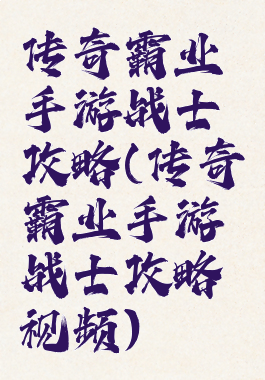 传奇霸业
手游战士
攻略(传奇
霸业手游
战士攻略
视频)